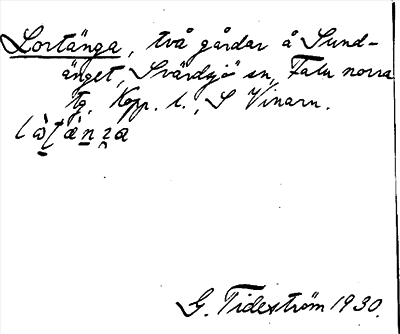 Lortänga, två gårdar å Sund-
änget, Svärdsjö sn, Falu norra
tg, Kopp. l., S Vinarn.
G. Tideström 1930.